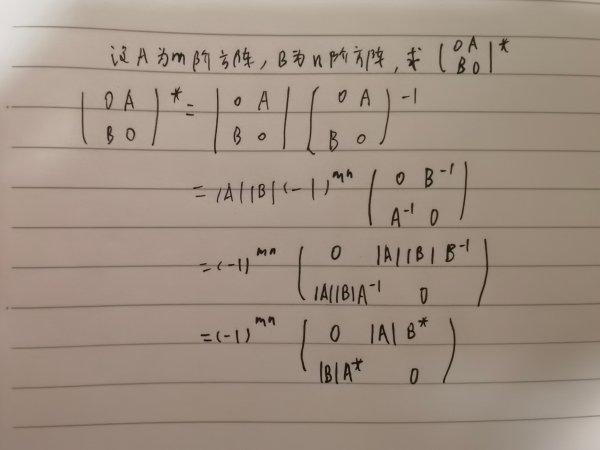 设A为m阶方阵,B为n阶方阵,求 (0 A
B 0)*
(0 A
B 0)* = |0 A
B 0| (0 A
B 0)-1
= |A||B|(-1)mn (0 B-1
A-1 0)
= (-1)mn (0 |A||B|B-1
|A||B|A-1 0)
= (-1)mn (0 |A|B*
|B|A* 0)